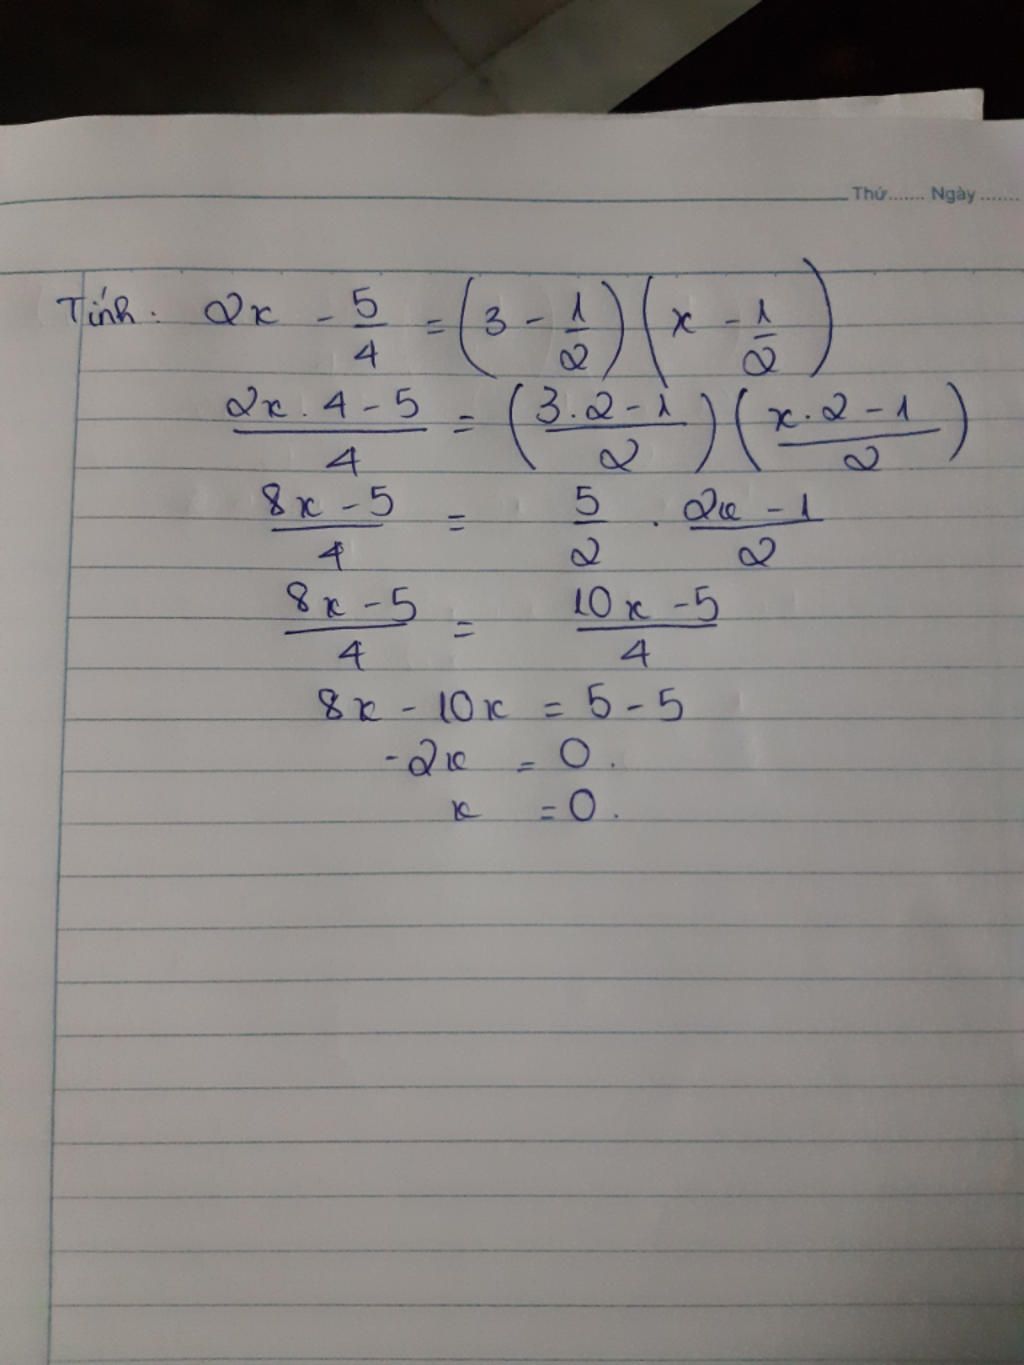 Thứ....... Ngày.......
Tính: 2x - 5/4 = (3 - 1/2)(x - 1/2)
(2x.4-5)/4 = ((3.2-1)/2)((x.2-1)/2)
(8x-5)/4 = 5/2 . (2x-1)/2
(8x-5)/4 = (10x-5)/4
8x - 10x = 5 - 5
-2x = 0.
x = 0.